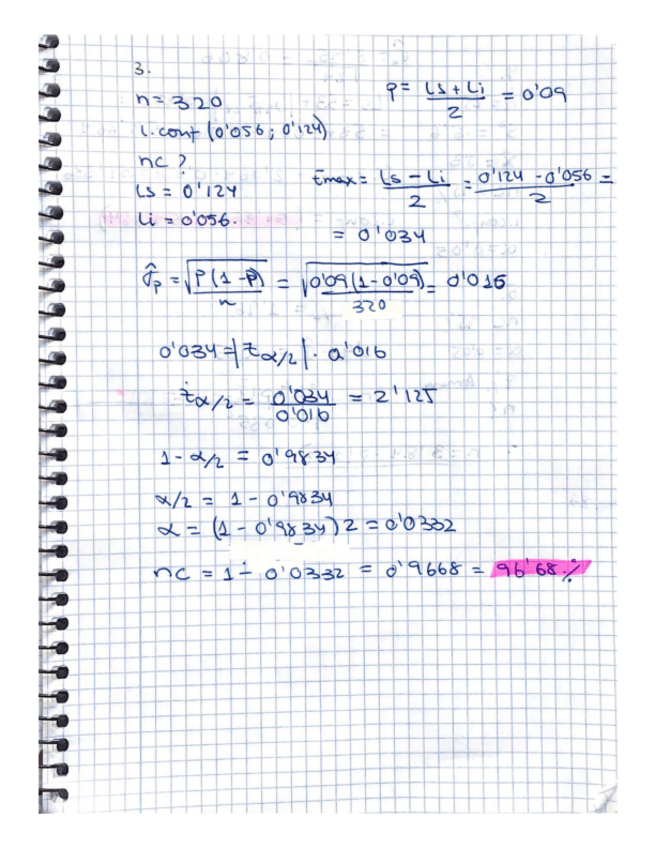 3.
n = 320
I. conf (0'056 ; 0'124)
nc ?
Ls = 0'124
Li = 0'056.
p = (Ls + Li)/2 = 0'09
Emax = (Ls - Li)/2 = (0'124 - 0'056)/2 =
= 0'034
σ̂p = √(P(1 - P)/n) = √(0'09(1 - 0'09)/320) = 0'016
0'034 = |zα/2| · 0'016
zα/2 = 0'034/0'016 = 2'125
1 - α/2 = 0'9834
α/2 = 1 - 0'9834
α = (1 - 0'9834) 2 = 0'0332
nc = 1 - 0'0332 = 0'9668 = 96'68 %